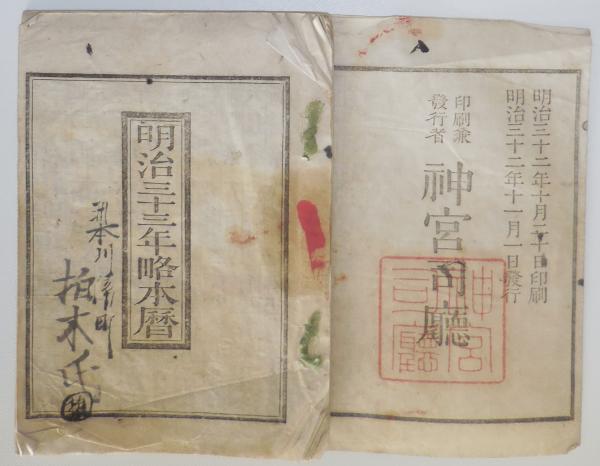 明治三十三年略本暦
柏木氏
明治三十二年十月二十日印刷
明治三十二年十一月一日發行
印刷兼
發行者
神宮司廳
神宮
司廳